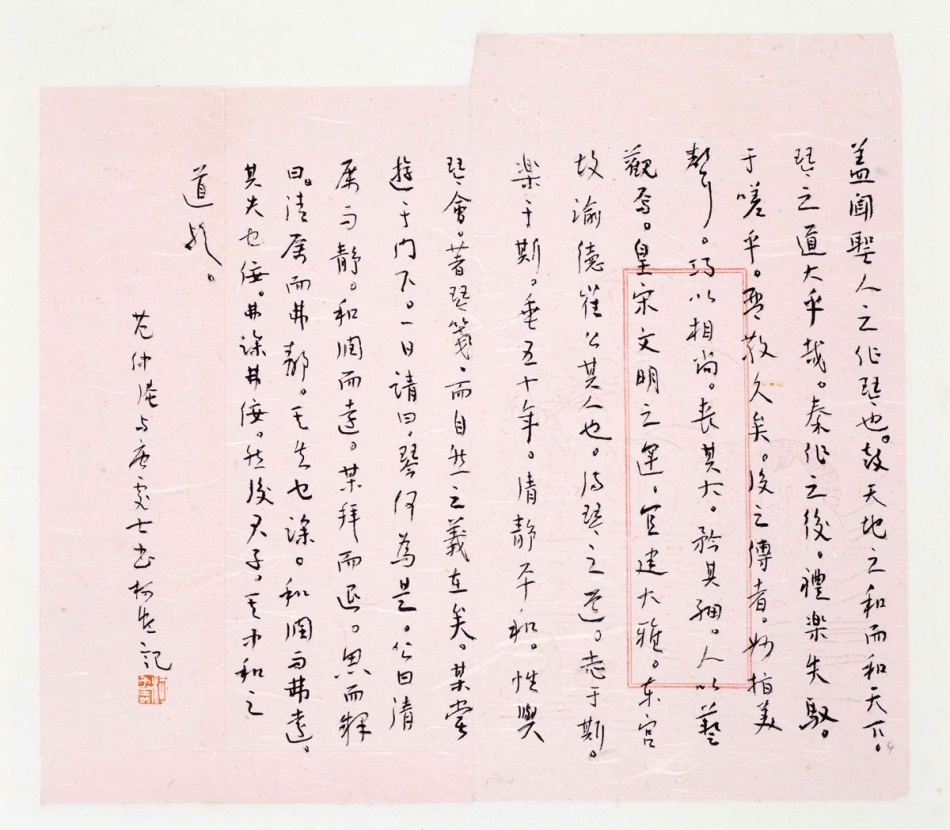 盖闻聖人之作琴也。鼓天地之和而和天下。
琴之道大乎哉。秦作之後。禮楽失馭。
于嗟乎。琴散久矣。後之傳者。妙指美
聲。巧以相尚。喪其大。矜其細。人以藝
觀焉。皇宋文明之運。宜建大雅。东宫
故諭德崔公其人也。得琴之道。志于斯。
楽于斯。垂五十年。清静平和。性與
琴會。著琴箋。而自然之義在矣。某嘗
遊于门下。一日請曰。琴何為是。公曰清
厲而静。和润而遠。某拜而退。思而釋
曰。清厲而弗静。其失也躁。和润而弗遠。
其失也佞。弗躁弗佞。然後君子。其中和之
道歟。
范仲淹与唐處士书
記